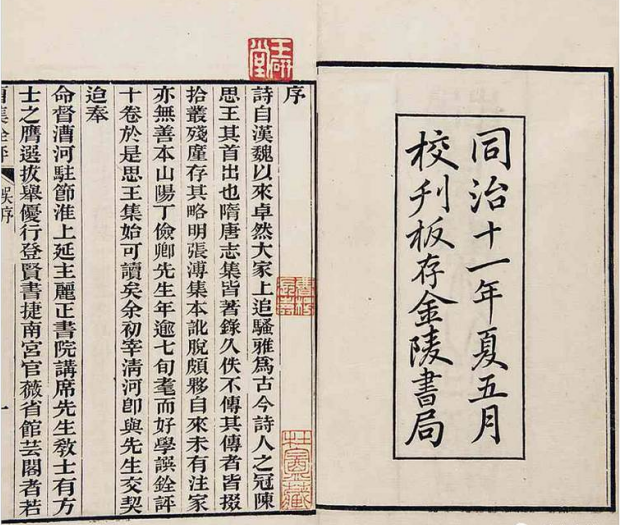 同治十一年夏五月
校刋板存金陵書局
序
詩自漢魏以來卓然大家上追騷雅爲古今詩人之冠陳
思王其首出也隋唐志集皆著錄久佚不傳其傳者皆掇
拾叢殘廑存其略明張溥集本訛脫頗夥自來未有注家
亦無善本山陽丁儉卿先生年逾七旬耄而好學譔銓評
十卷於是思王集始可讀矣余初宰淸河卽與先生交契
迨奉
命督漕河駐節淮上延主麗正書院講席先生敎士有方
士之膺選拔舉優行登賢書捷南宮官薇省館芸閣者若
序
一